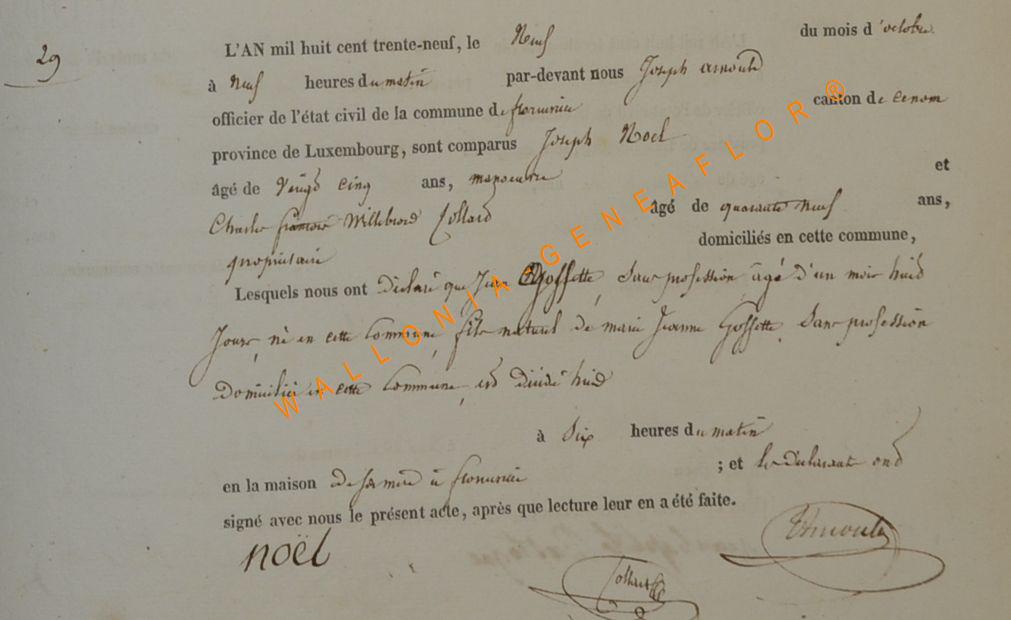 29
L'AN mil huit cent trente-neuf, le Neuf du mois d'octobre
à Neuf heures du matin par-devant nous Joseph arnould
officier de l'état civil de la commune de canton de
province de Luxembourg, sont comparus Joseph Noel
âgé de Vingt Cinq ans, manoeuvre et
Charles françois Willebrord Collard âgé de quarante neuf ans,
propriétaire domiciliés en cette commune,
Lesquels nous ont déclaré que Jean Gossette, Sans profession âgé d'un mois huit
Jours, né en cette Commune, fils naturel de marie Jeanne Gossette, Sans profession
Domicilié en cette Commune, est décédé huid
à Six heures du matin
en la maison de sa mère à ; et les déclarants ont
signé avec nous le présent acte, après que lecture leur en a été faite.
noël
WALLONIA-GENEAFLOR ®